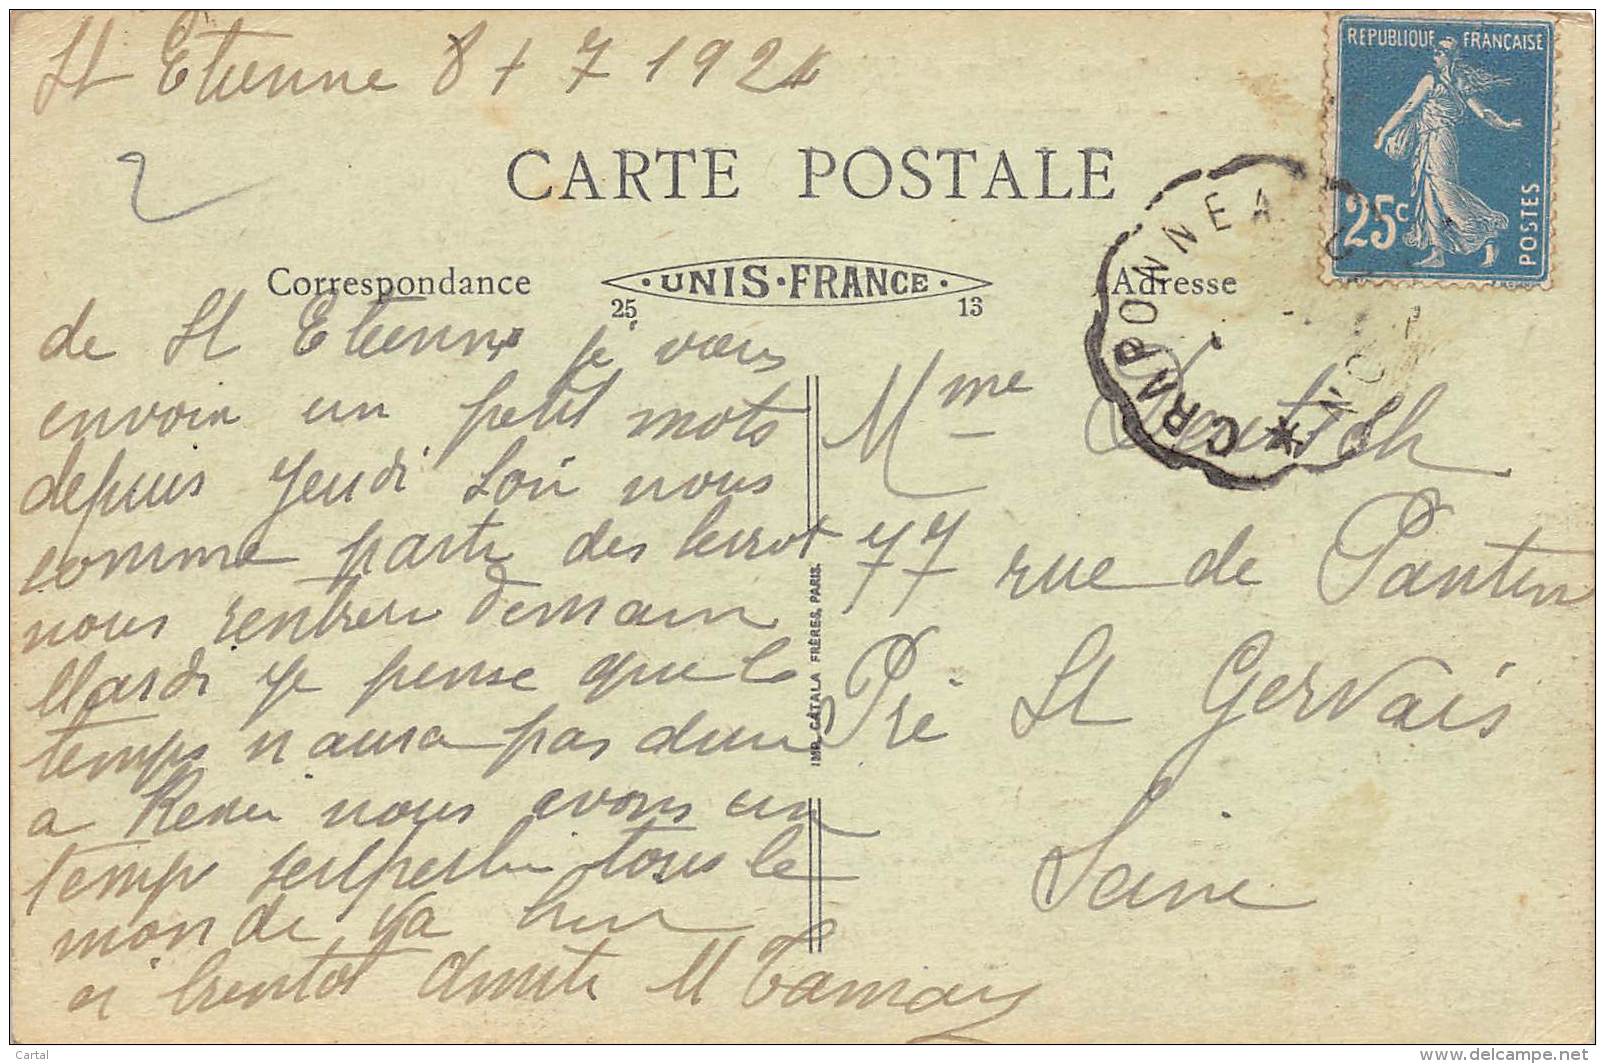 St Etienne 8 + 7 1924
REPUBLIQUE FRANÇAISE
25c POSTES
CARTE POSTALE
CRAPONNE A
Correspondance
UNIS·FRANCE
25 13
Adresse
de St Etienne je vous
envoie un petit mots
depuis Jeudi Soir nous
comme partis des
nous rentrer demain
Mardi je pense que le
temps naura pas durer
a nous avons un
temps tous le
monde va bien
ai bientot Amitie M
Mme
77 rue de Pantin
Pré St Gervais
Seine
IMP. CATALA FRÈRES, PARIS.
Cartal
www.delcampe.net